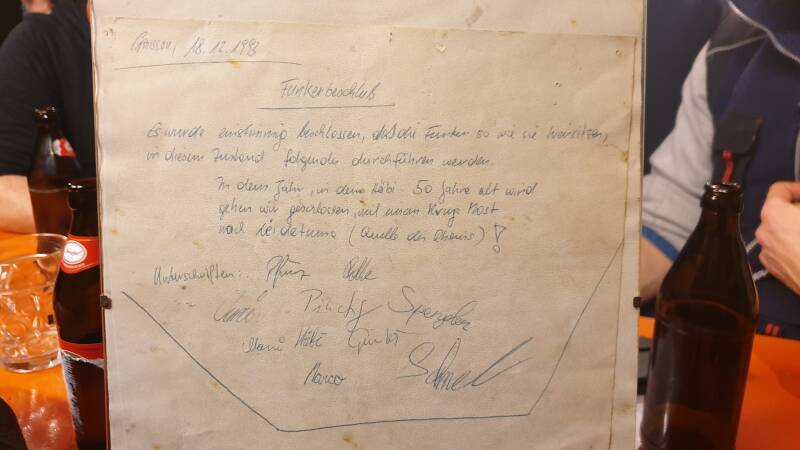 18.12.1993
Funkerbeschluß
Es wurde einstimmig beschlossen, daß die Funker so wie sie hier sitzen,
in diesem Zustand folgendes durchführen werden.
In dem Jahr, in dem Häbi 50 Jahre alt wird
gehen wir geschlossen mit einem Krug Most
nach (Quelle des Rheins) !
Unterschriften:
Spengler
Häbi
Marco